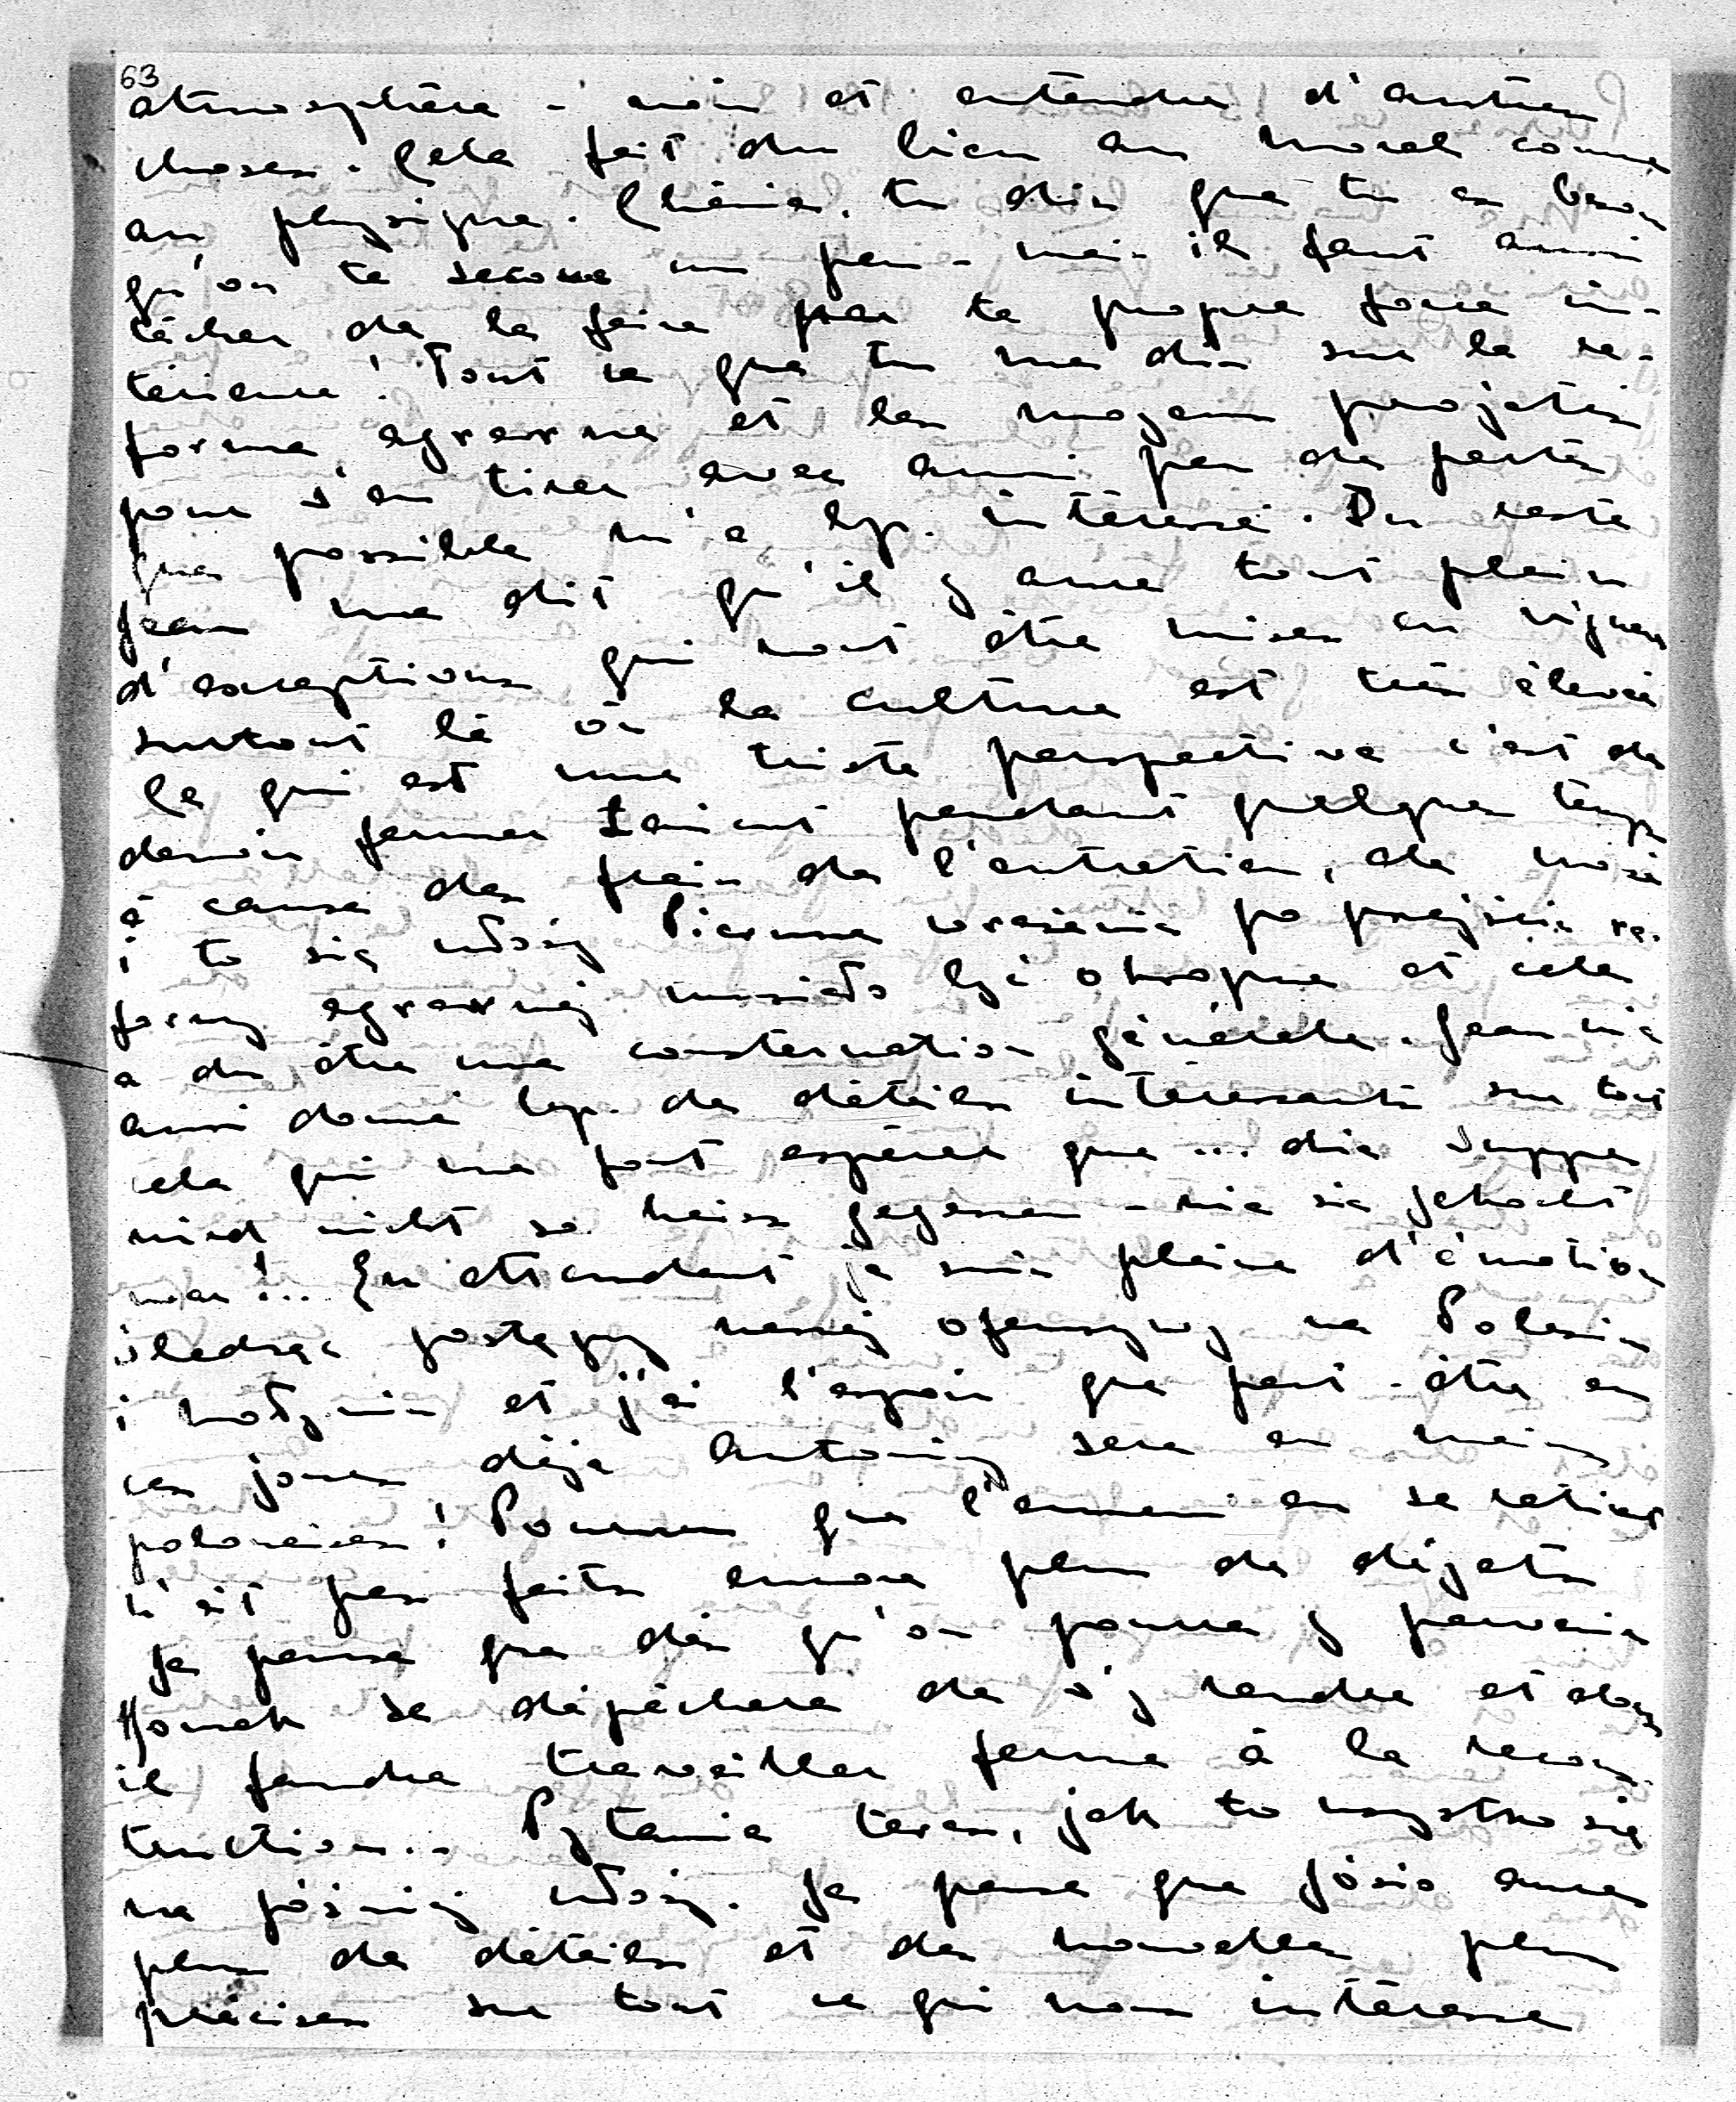 63
atmosphère - voir et entendre d'autres
choses. Cela fait du bien au moral comme
au physique. Chérie, tu dis que tu as besoin
qu'on te secoue un peu - mais il faut aussi
tâcher de le faire par ta propre force in-
térieure! Tout ce que tu me dis sur la re-
forme agrarna et les moyens projetés
pour s'en tirer avec aussi peu de pertes
que possible m'a bp. intéressé. Du reste
Jean me dit qu'il y aura tout plein
d'exceptions qui vont être mises en vigueur
surtout là où la culture est très élevée
Ce qui est une triste perspective c'est de
devoir fermer Łańcut pendant quelques temps
à cause des frais de l'entretien, ale może
i to się ułoży. Pierwsze wrażenie po przejściu re-
formy agrarnej musiało być okropne et cela
a du être une consternation générale. Jean m'a
aussi donné bp. de détails intéressants sur tout
cela qui me font espérer que ... die Suppe
wird nicht so heiss gegessen - wie sie gekocht
war!... En attendant je suis pleine d'émotion
śledząc postępy naszej ofensywy na Polesiu
i Wołyniu et j'ai l'espoir que peut-être en
ces jours déjà Antoniny sera en mains
polonaises! Pourvu que l'ennemi en se retirant
n'ait pas faits encore plus de dégats
Je pense que dès qu'on pourra y parvenir
se dépêchera de s'y rendre et alors
il faudra travailler ferme à la recons-
truction... Pytanie teraz, jak to wszystko się
na później ułoży. Je pense que Józio aura
plus de détails et des nouvelles plus
précises sur tout ce qui nous intéresse